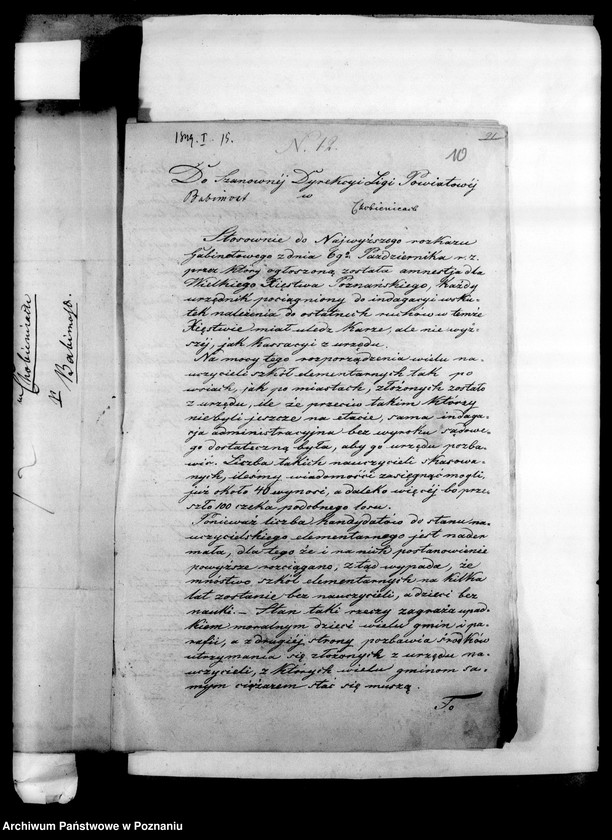 1849. I 15.
N. 12.
21
10
Do Szanownéj Dyrekcyi Ligi Powiatowéj
Babimost w Chobienicach
Stosownie do Najwyższego rozkazu
Gabinetowego z dnia Października r. z.
przez który ogłoszoną została amnestja dla
Wielkiego Księstwa Poznańskiego, Każdy
urzędnik pociągniony do indagacyi wsku-
tek należenia do ostatnich ruchów w temże
Księstwie miał uledz karze, ale nie wyż-
széj, jak kassacyi z urzędu.
Na mocy tego rozporządzenia wielu na-
uczycieli szkół elementarnych tak po
wsiach, jak po miastach, złożonych zostało
z urzędu, ile że przeciw takim którzy
nie byli jeszcze na etacie, sama indaga-
cja administracyjna bez wyroku sądowe-
go dostateczną była, aby go urzędu pozba-
wić. Liczba takich nauczycieli skasowa-
nych, ileśmy wiadomość zasięgnąć mogli,
już około 40 wynosi, a daleko więcéj bo prze-
szło 100 czeka podobnego losu.
Ponieważ liczba kandydatów do stanu na-
uczycielskiego elementarnego jest nader
mała, dla tego że i na nich postanowienie
powyższe rozciągano, z tąd wypada, że
mnóstwo szkół elementarnych na kilka
lat zostanie bez nauczycieli, a dzieci bez
nauki. — Stan taki rzeczy zagraża upad-
kiem moralnym dzieci wielu gmin i pa-
rafii, a z drugiéj strony pozbawia środków
utrzymania się złożonych z urzędu na-
uczycieli, z których wielu gminom sa-
mym ciężarem stać się muszą.
To
w Chobienicach
p. Babimost.
Archiwum Państwowe w Poznaniu